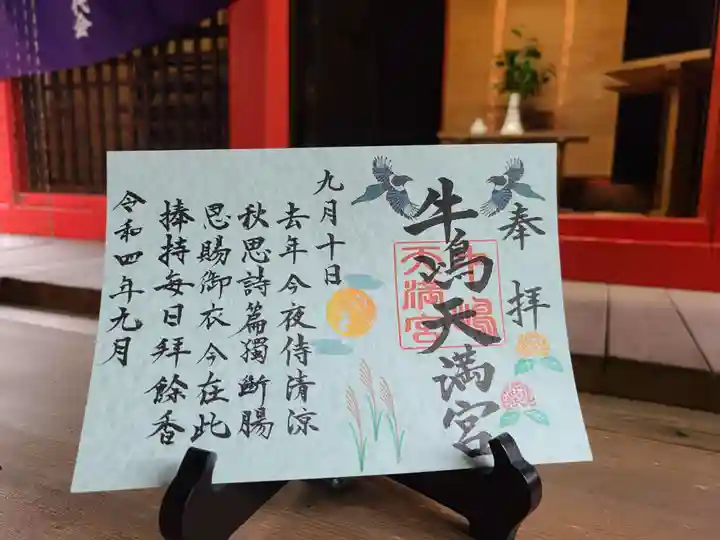 奉拝
牛嶋天満宮
牛嶋
天満宮
九月十日
去年今夜侍清涼
秋思詩篇獨斷腸
恩賜御衣今在此
捧持毎日拜餘香
令和四年九月